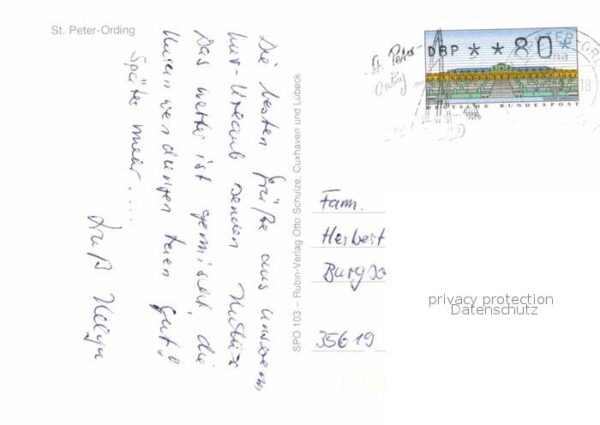 St. Peter-Ording
Die besten Grüße aus unserem
Kur-Urlaub senden
Das Wetter ist gemischt, die
Kuranwendungen tuen gut!
Später mehr....
Gruß Helga
SPO 103 – Rubin-Verlag Otto Schulze, Cuxhaven und Lübeck
St. Peter-
Ording
DBP **80*
DEUTSCHE BUNDESPOST
Fam.
Herbert
Burg
35619
privacy protection
Datenschutz